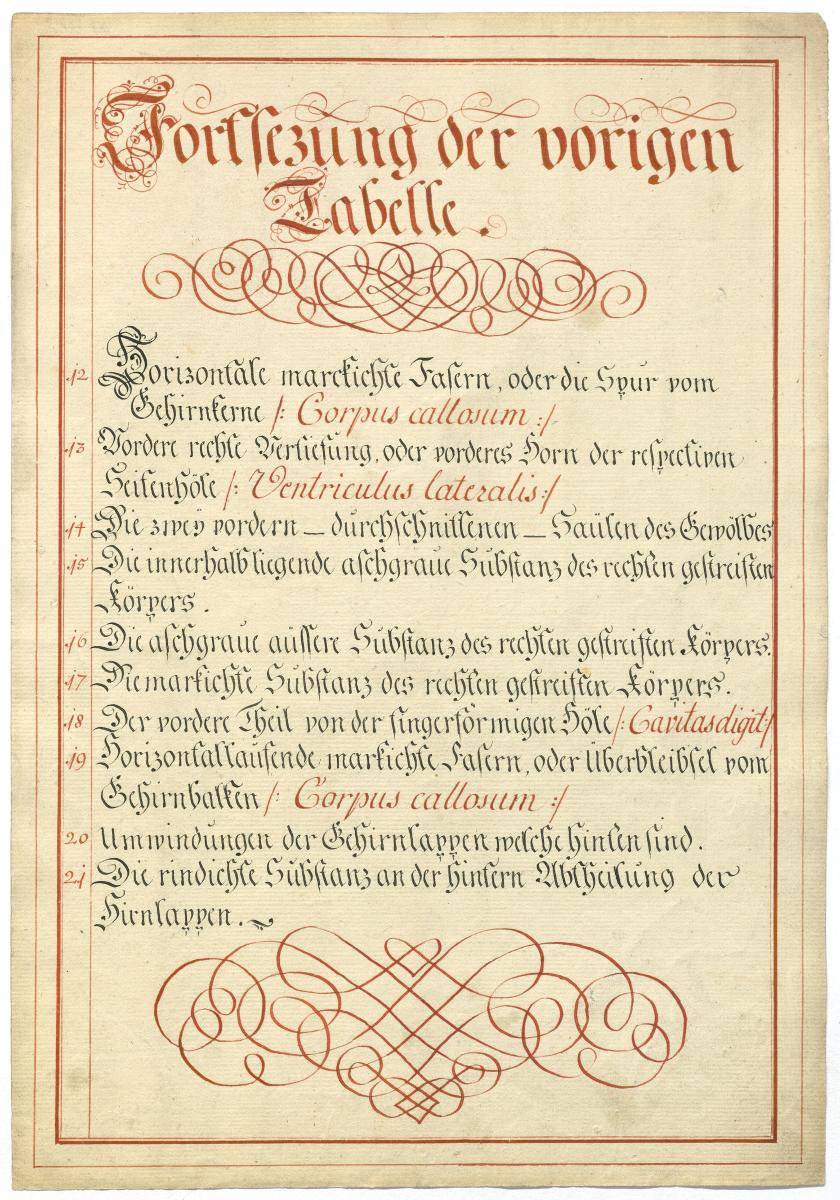 Fortsezung der vorigen
Tabelle.
12 Horizontale marckichte Fasern, oder die Spur vom
Gehirnkerne /: Corpus callosum :/
13 Vordere rechte Vertiefung, oder vorderes Horn der respectiven
Seitenhöle /: Ventriculus lateralis :/
14 Die zwey vordern — durchschnittenen — Saülen des Gewölbes
15 Die innerhalb liegende aschgraue Substanz des rechten gestreiften
Körpers.
16 Die aschgraue aüssere Substanz des rechten gestreiften Körpers.
17 Die markichte Substanz des rechten gestreiften Körpers.
18 Der vordere Theil von der fingerförmigen Höle /: Cavitas digit :/
19 Horizontallaufende markichte Fasern, oder Überbleibsel vom
Gehirnbalken /: Corpus callosum :/
20 Umwindungen der Gehirnlappen welche hinten sind.
21 Die rindichte Substanz an der hintern Abtheilung der
Hirnlappen.